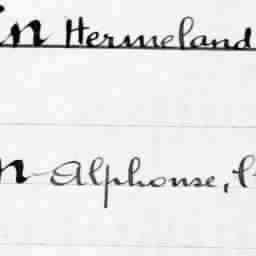 in Hermeland
n Alphonse,